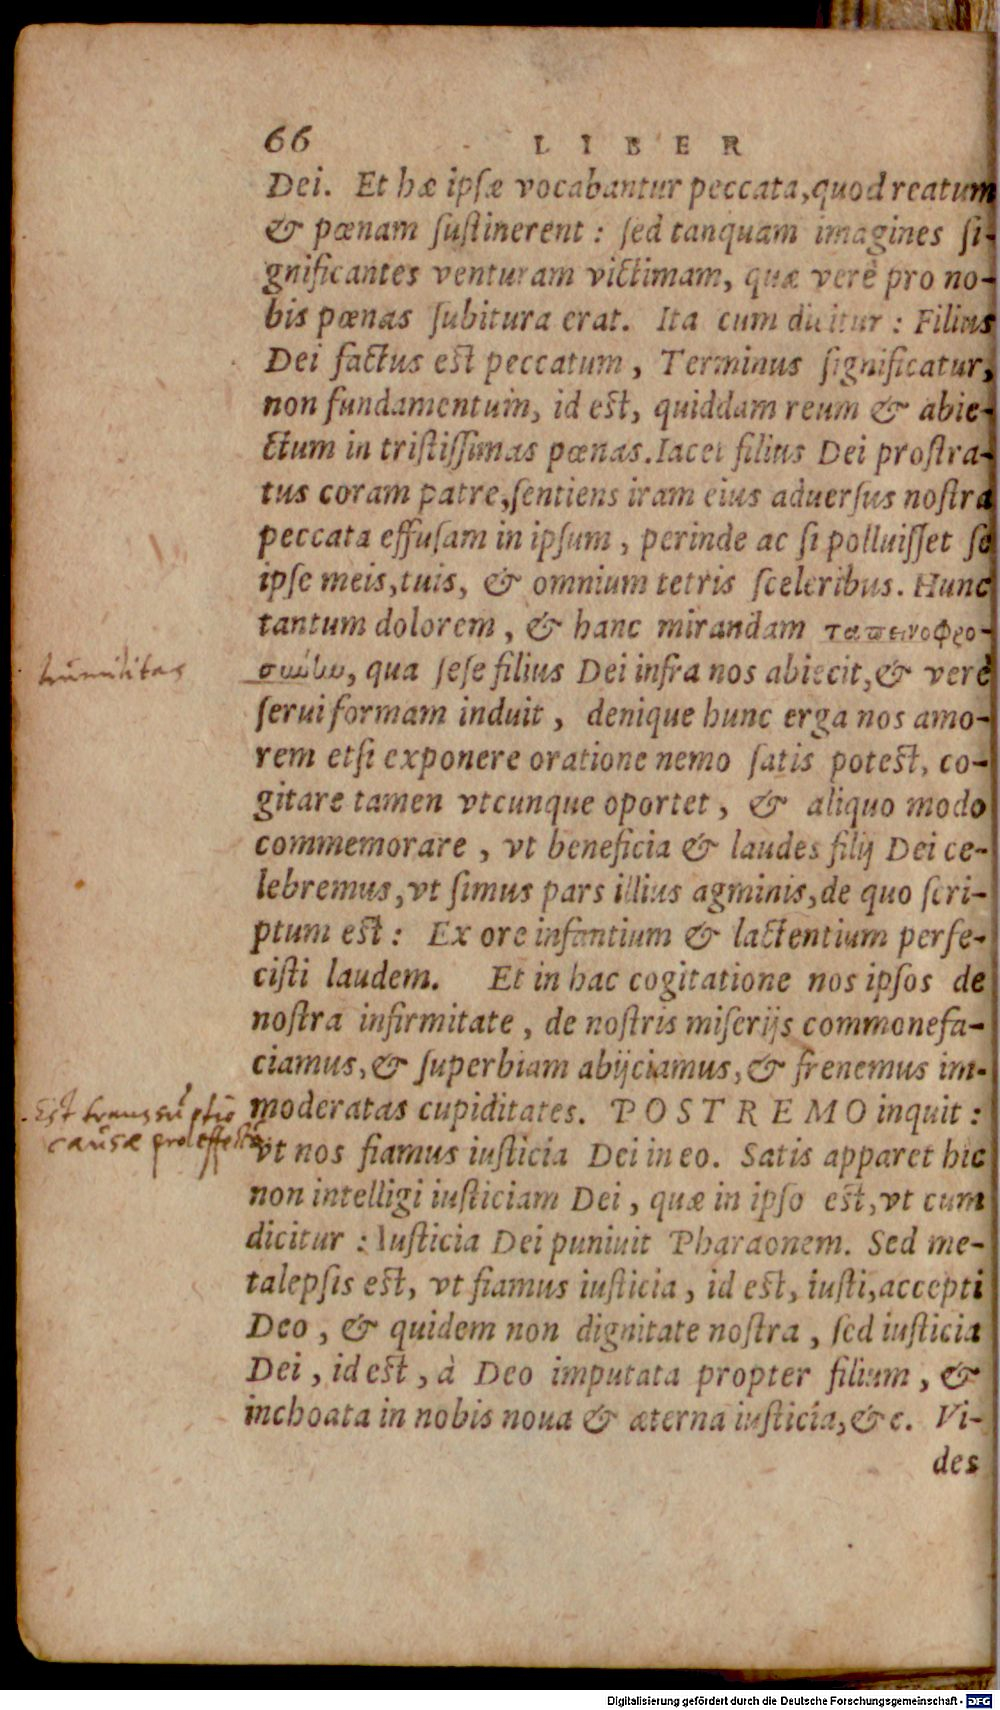 66 LIBER
Dei. Et hæ ipsæ vocabantur peccata, quod reatum
& pœnam sustinerent: sed tanquam imagines si-
gnificantes venturam victimam, quæ verè pro no-
bis pœnas subitura erat. Ita cum dicitur: Filius
Dei factus est peccatum, Terminus significatur,
non fundamentum, id est, quiddam reum & abie-
ctum in tristissimas pœnas. Iacet filius Dei prostra-
tus coram patre, sentiens iram eius aduersus nostra
peccata effusam in ipsum, perinde ac si polluisset se
ipse meis, tuis, & omnium tetris sceleribus. Hunc
tantum dolorem, & hanc mirandam ταπεινοφρο-
humilitas
σύνην, qua sese filius Dei infra nos abiecit, & verè
serui formam induit, denique hunc erga nos amo-
rem etsi exponere oratione nemo satis potest, co-
gitare tamen vtcunque oportet, & aliquo modo
commemorare, vt beneficia & laudes filij Dei ce-
lebremus, vt simus pars illius agminis, de quo scri-
ptum est: Ex ore infantium & lactentium perfe-
cisti laudem. Et in hac cogitatione nos ipsos de
nostra infirmitate, de nostris miserijs commonefa-
ciamus, & superbiam abijciamus, & frenemus im-
Est transsūptio
moderatas cupiditates. POSTREMO inquit:
causæ pro effectu
vt nos fiamus iusticia Dei in eo. Satis apparet hic
non intelligi iusticiam Dei, quæ in ipso est, vt cum
dicitur: Iusticia Dei puniuit Pharaonem. Sed me-
talepsis est, vt fiamus iusticia, id est, iusti, accepti
Deo, & quidem non dignitate nostra, sed iusticia
Dei, id est, à Deo imputata propter filium, &
inchoata in nobis noua & æterna iusticia, &c. Vi-
des
Digitalisierung gefördert durch die Deutsche Forschungsgemeinschaft - DFG